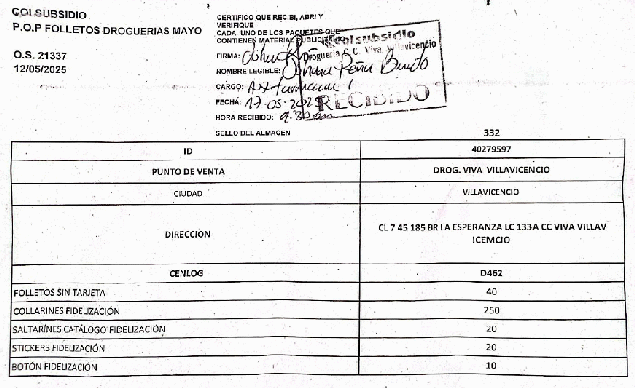 COLSUBSIDIO
P.O.P FOLLETOS DROGUERIAS MAYO
O.S. 21337
12/05/2025
CERTIFICO QUE RECIBI, ABRI Y
VERIFIQUE
CADA UNO DE LOS PAQUETES QUE
CONTIENEN MATERIAL PUBLICIT
FIRMA:
NOMBRE LEGIBLE: Peña
CARGO:
FECHA: 17-05-202
HORA RECIBIDO:
SELLO DEL ALMACEN
Colsubsidio
Droguería C.C. Viva Villavicencio
RECIBIDO
332
ID 40279597
PUNTO DE VENTA DROG. VIVA VILLAVICENCIO
CIUDAD VILLAVICENCIO
DIRECCION CL 7 45 185 BR LA ESPERANZA LC 133A CC VIVA VILLAV
ICEMCIO
CENLOG D462
FOLLETOS SIN TARJETA 40
COLLARINES FIDELIZACIÓN 250
SALTARÍNES CATÁLOGO FIDELIZACIÓN 20
STICKERS FIDELIZACIÓN 20
BOTÓN FIDELIZACIÓN 10